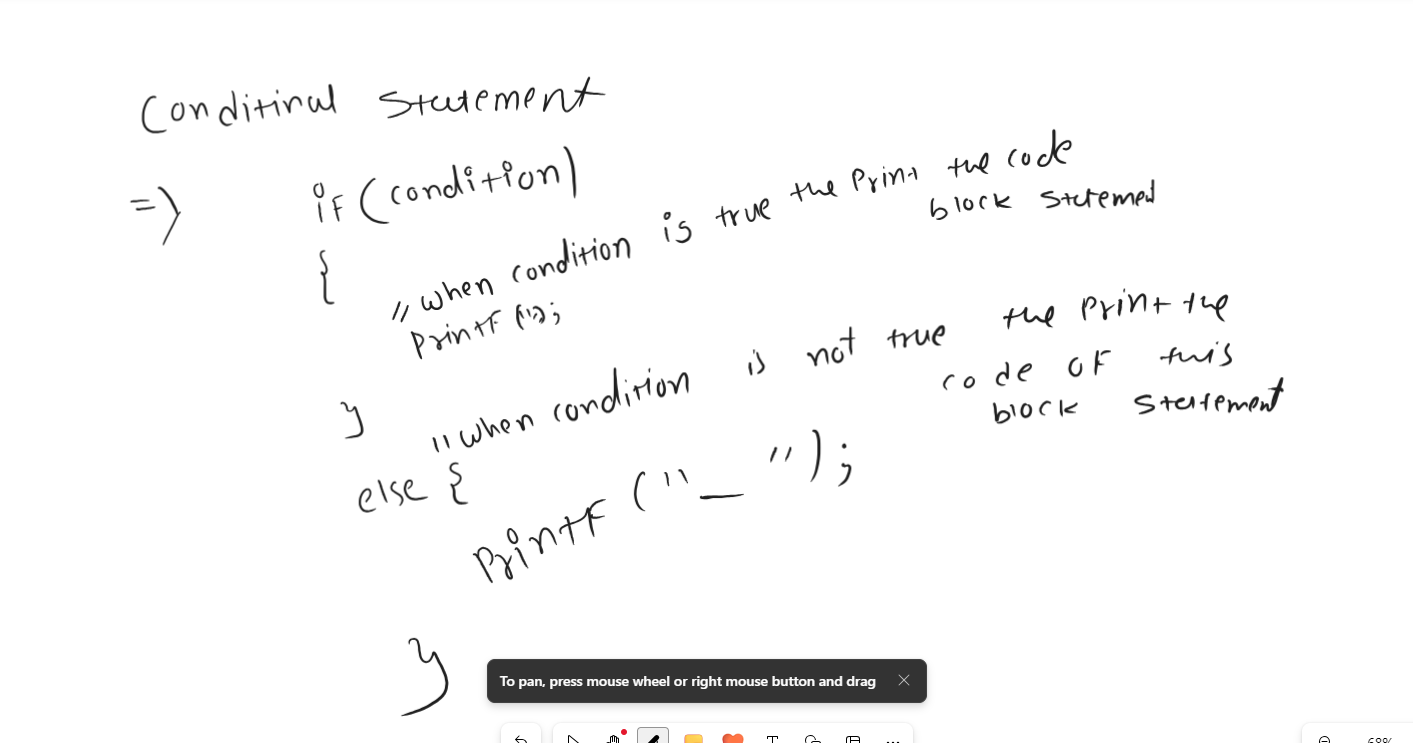 Conditinal Statement
=> if (condition)
{
// when condition is true the Print the code
block statement
Printf (" ");
}
// when condition is not true the Print the
code of this
block statement
else {
Printf ("_ ");
}
To pan, press mouse wheel or right mouse button and drag